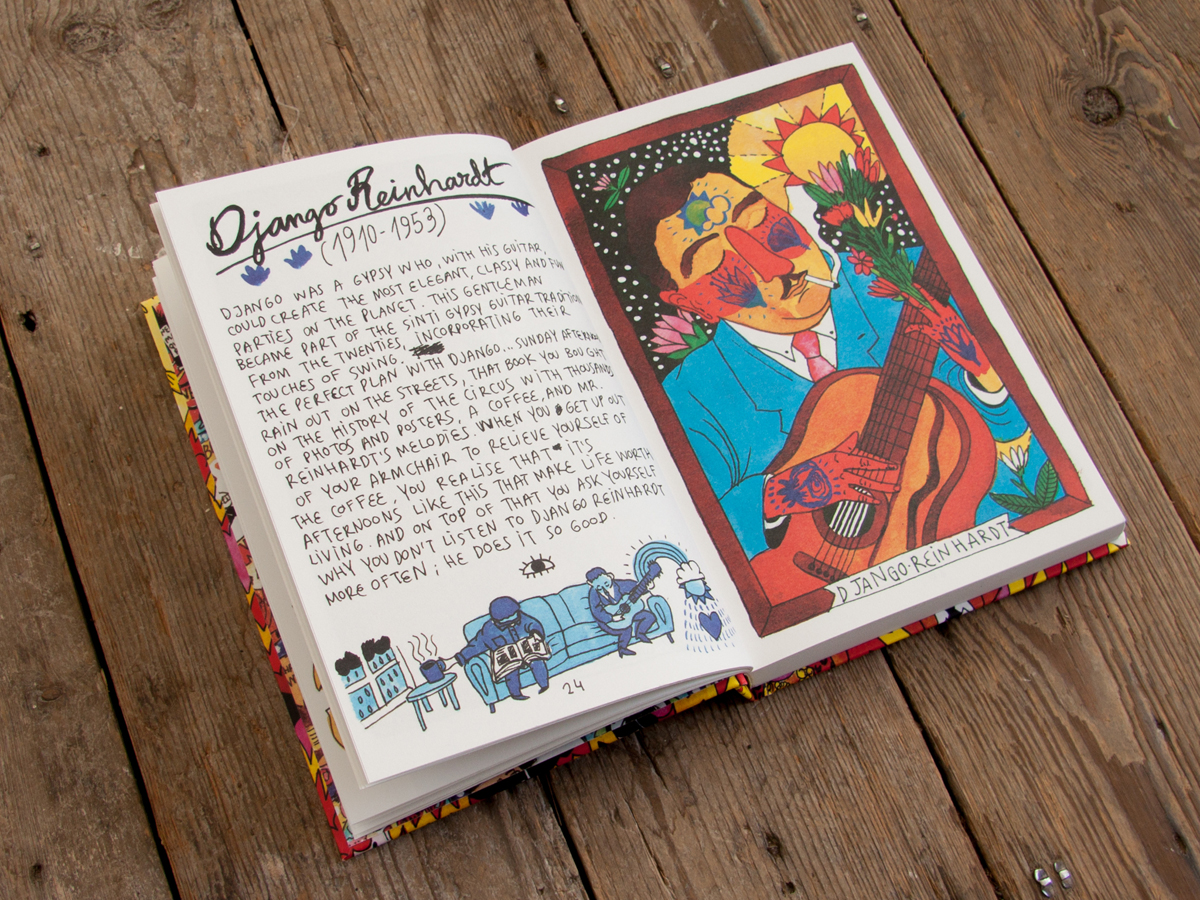 Django Reinhardt
(1910-1953)
DJANGO WAS A GYPSY WHO, WITH HIS GUITAR,
COULD CREATE THE MOST ELEGANT, CLASSY AND FUN
PARTIES ON THE PLANET. THIS GENTLEMAN
BECAME PART OF THE SINTI GYPSY GUITAR TRADITION
FROM THE TWENTIES, INCORPORATING THEIR
TOUCHES OF SWING.
THE PERFECT PLAN WITH DJANGO... SUNDAY AFTERNOON
RAIN OUT ON THE STREETS, THAT BOOK YOU BOUGHT
ON THE HISTORY OF THE CIRCUS WITH THOUSANDS
OF PHOTOS AND POSTERS, A COFFEE, AND MR.
REINHARDT'S MELODIES. WHEN YOU GET UP OUT
OF YOUR ARMCHAIR TO RELIEVE YOURSELF OF
THE COFFEE, YOU REALISE THAT ITS
AFTERNOONS LIKE THIS THAT MAKE LIFE WORTH
LIVING. AND ON TOP OF THAT YOU ASK YOURSELF
WHY YOU DON'T LISTEN TO DJANGO REINHARDT
MORE OFTEN; HE DOES IT SO GOOD.
24
DJANGO·REINHARDT